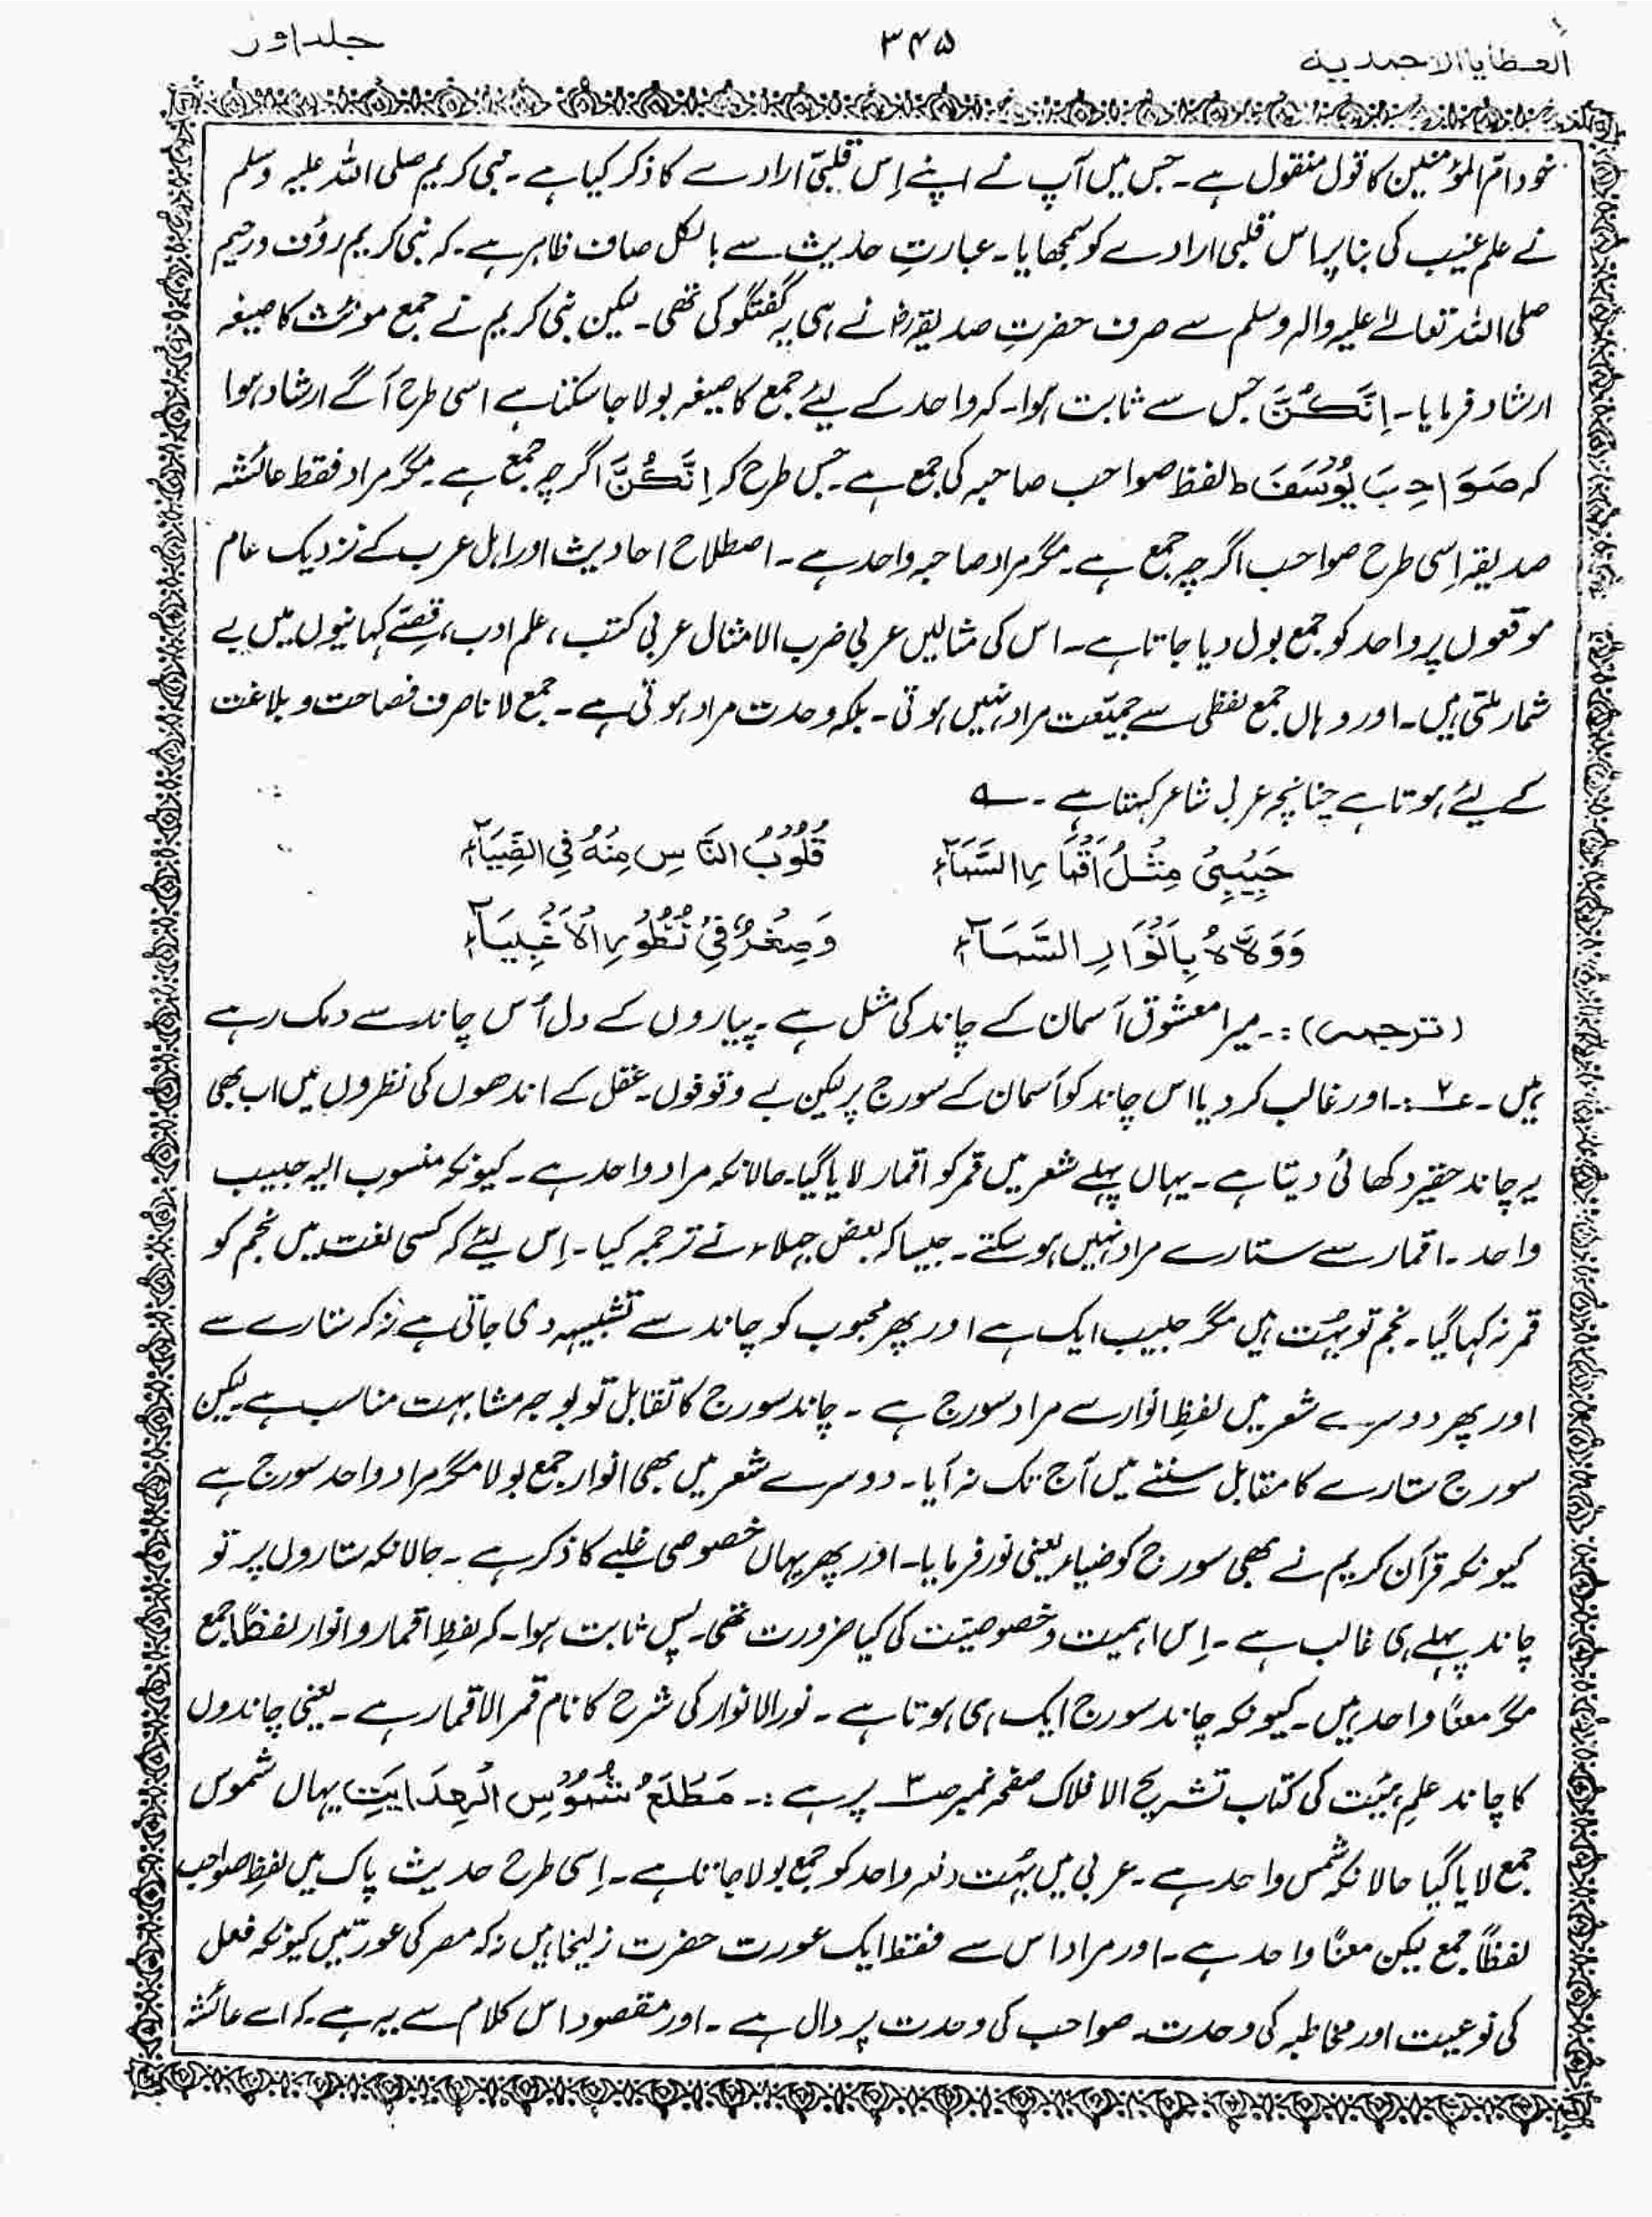 العطایا الاحمدیہ ۳۴۵ جلد اوّل
خود امّ المؤمنین کا قول منقول ہے۔ جس میں آپ نے اپنے اِس قلبیّ ارادے کا ذکر کیا ہے۔ نبی کریم صلی اللہ علیہ وسلم
نے علم غیب کی بنا پر اس قلبی ارادے کو سمجھایا۔ عبارتِ حدیث سے بالکل صاف ظاہر ہے۔ کہ نبی کریم رؤف ورحیم
صلی اللہ تعالےٰ علیہ والہٖ وسلم سے صرف حضرتِ صدیقہ رض نے ہی یہ گفتگو کی تھی۔ لیکن نبی کریم نے جمع مونث کا صیغہ
ارشاد فرمایا۔ اِنَّکُنَّ جس سے ثابت ہوا۔ کہ واحد کے لیئے جمع کا صیغہ بولا جاسکتا ہے اسی طرح آگے ارشاد ہوا
کہ صَوَاحِبَ یُوْسَفَ ط لفظ صواحب صاحبہ کی جمع ہے۔ جس طرح کہ اِنَّکُنَّ اگرچہ جمع ہے۔ مگر مراد فقط عائشہ
صدیقہ اِسی طرح صواحب اگرچہ جمع ہے۔ مگر مراد صاحبہ واحد ہے۔ اصطلاح احادیث اور اہل عرب کے نزدیک عام
موقعوں پر واحد کو جمع بول دیا جاتا ہے۔ اس کی مثالیں عربی ضرب الامثال عربی کتب، علم ادب، قصّے کہانیوں میں بے
شمار ملتی ہیں۔ اور وہاں جمع لفظی سے جمیّعت مراد نہیں ہوتی۔ بلکہ وحدت مراد ہوتی ہے۔ جمع لانا صرف فصاحت و بلاغت
کے لیئے ہوتا ہے چنانچہ عربی شاعر کہتا ہے۔ ؎
حَبِیْبِیْ مِثْلُ اَقْمَارِ السَّمَآءِ قُلُوْبُ النَّاسِ مِنْهُ فِی الضِّیَآءِ
وَوَلَّاہُ بِاَنْوَارِ السَّمَآءِ وَصِغْرٌ فِیْ نُظُوْرِ الْاَغْبِیَآءِ
(ترجمہ):۔ میرا معشوق آسمان کے چاند کی مثل ہے۔ پیاروں کے دل اُس چاند سے دمک رہے
ہیں۔ ۲؎:۔ اور غالب کر دیا اس چاند کو آسمان کے سورج پر لیکن بے وقوفوں۔ عقل کے اندھوں کی نظروں میں اب بھی
یہ چاند حقیر دکھائی دیتا ہے۔ یہاں پہلے شعر میں قمر کو اقمار لایا گیا۔ حالانکہ مراد واحد ہے۔ کیونکہ منسوب الیہ حبیب
واحد۔ اقمار سے ستارے مراد نہیں ہوسکتے۔ جیسا کہ بعض جہلاء نے ترجمہ کیا۔ اِس لیئے کہ کسی لغت میں نجم کو
قمر نہ کہا گیا۔ نجم تو بہُت ہیں مگر حبیب ایک ہے اور پھر محبوب کو چاند سے تشبیہہ دی جاتی ہے نہ کہ ستارے سے
اور پھر دوسرے شعر میں لفظِ انوار سے مراد سورج ہے ۔ چاند سورج کا تقابل تو بوجہ مشابہت مناسب ہے لیکن
سورج ستارے کا مقابل سننے میں آج تک نہ آیا۔ دوسرے شعر میں بھی انوار جمع بولا مگر مراد واحد سورج ہے
کیونکہ قرآن کریم نے بھی سورج کو ضیاء یعنی نور فرمایا۔ اور پھر یہاں خصوصی غلبے کا ذکر ہے۔ حالانکہ ستاروں پر تو
چاند پہلے ہی غالب ہے۔ اِس اہمیت و خصوصیّت کی کیا ضرورت تھی۔ پس ثابت ہوا۔ کہ لفظِ اقمار و انوار لفظًا جمع
مگر معنًا واحد ہیں۔ کیونکہ چاند سورج ایک ہی ہوتا ہے۔ نورالانوار کی شرح کا نام قمر الاقمار ہے۔ یعنی چاندوں
کا چاند علمِ ہیئت کی کتاب تشریح الافلاک صفحہ نمبر صـ۳ پر ہے :۔ مَطْلَعُ شُمُوْسِ الْہِدَایَتِ یہاں شموس
جمع لایا گیا حالانکہ شمس واحد ہے۔ عربی میں بہُت دفعہ واحد کو جمع بولا جاتا ہے۔ اِسی طرح حدیث پاک میں لفظِ صواحب
لفظًا جمع لیکن معنًا واحد ہے۔ اور مراد اس سے فقط ایک عورت حضرت زلیخا ہیں نہ کہ مصر کی عورتیں کیونکہ فعل
کی نوعیت اور مخاطبہ کی وحدت۔ صواحب کی وحدت پر دال ہے۔ اور مقصود اس کلام سے یہ ہے۔ کہ اے عائشہ